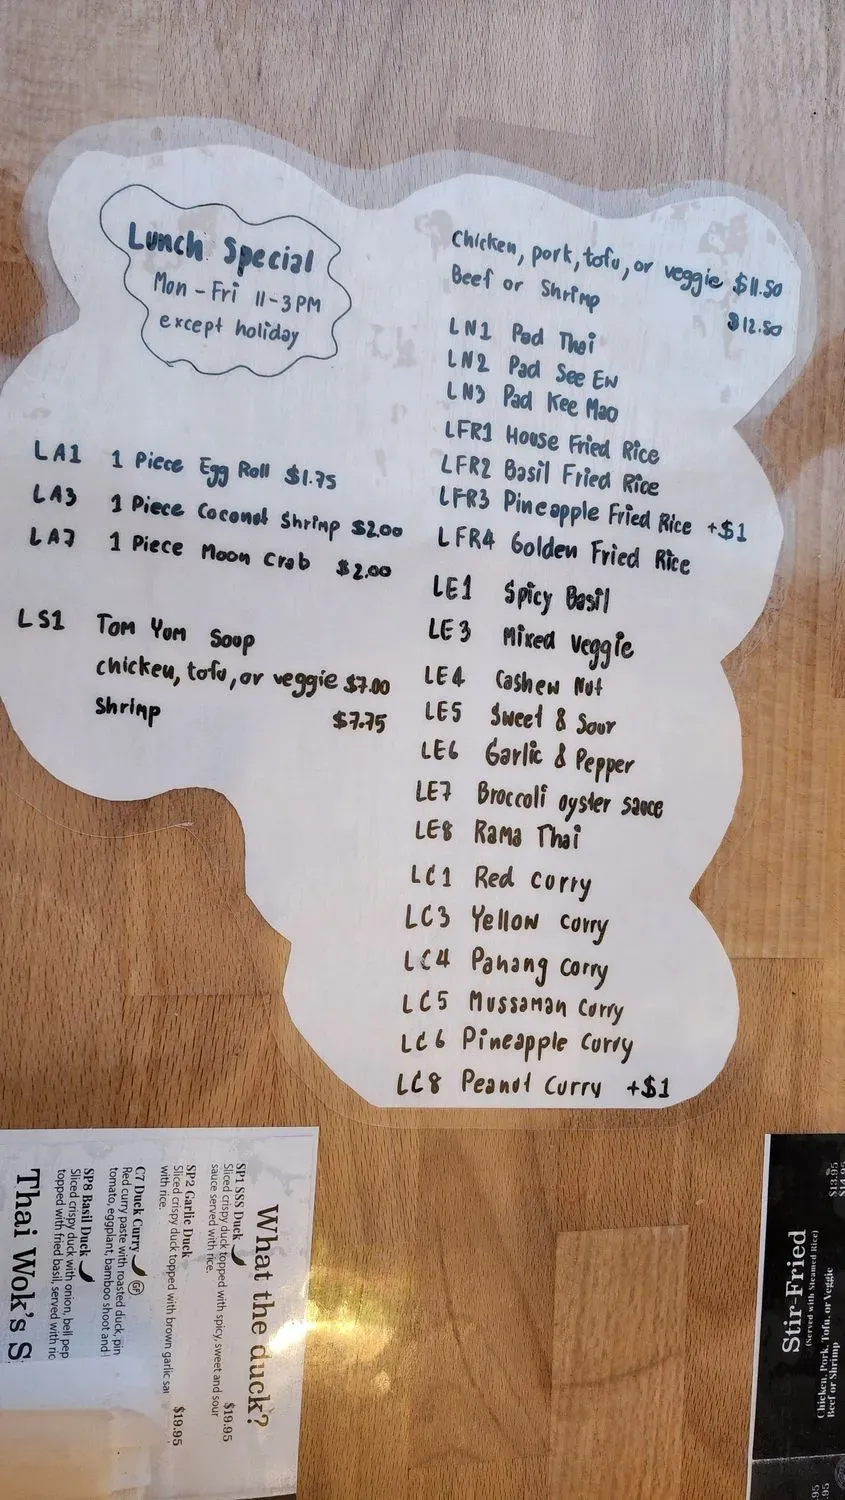 Lunch Special
Mon - Fri 11-3 PM
except holiday
LA1 1 Piece Egg Roll $1.75
LA3 1 Piece Coconut Shrimp $2.00
LA7 1 Piece Moon Crab $2.00
LS1 Tom Yum Soup
chicken, tofu, or veggie $7.00
Shrimp $7.75
Chicken, pork, tofu, or veggie $11.50
Beef or Shrimp $12.50
LN1 Pad Thai
LN2 Pad See Ew
LN3 Pad Kee Mao
LFR1 House Fried Rice
LFR2 Basil Fried Rice
LFR3 Pineapple Fried Rice +$1
LFR4 Golden Fried Rice
LE1 Spicy Basil
LE3 Mixed Veggie
LE4 Cashew Nut
LE5 Sweet & Sour
LE6 Garlic & Pepper
LE7 Broccoli oyster sauce
LE8 Rama Thai
LC1 Red curry
LC3 Yellow curry
LC4 Panang curry
LC5 Mussaman Curry
LC6 Pineapple Curry
LC8 Peanut Curry +$1
What the duck?
SP1 SSS Duck $19.95
Sliced crispy duck topped with spicy, sweet and sour
sauce served with rice.
SP2 Garlic Duck $19.95
Sliced crispy duck topped with brown garlic sau
with rice.
C7 Duck Curry GF
Red curry paste with roasted duck, pin
tomato, eggplant, bamboo shoot and
SP8 Basil Duck
Sliced crispy duck with onion, bell pep
topped with fried basil, served with ric
Thai Wok's S
Stir-Fried
(Served with Steamed Rice)
Chicken, Pork, Tofu, or Veggie $13.95
Beef or Shrimp $14.95